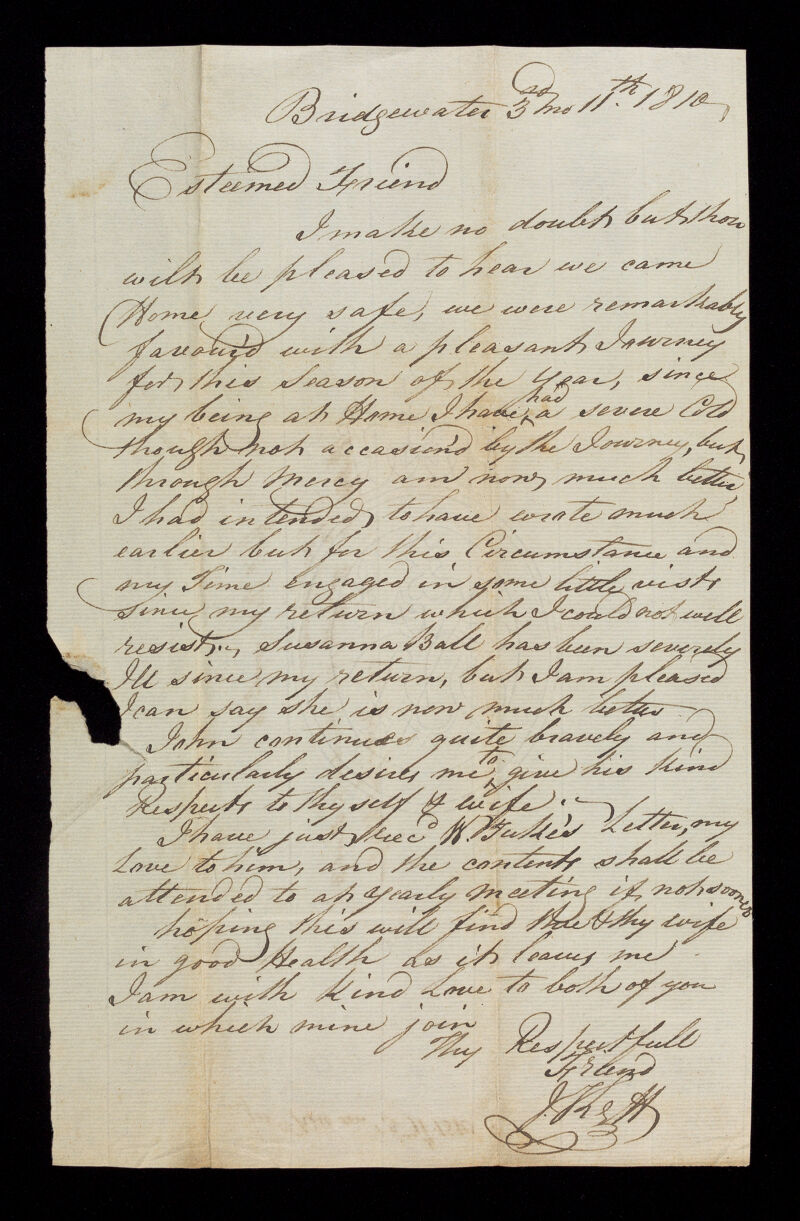 Bridgewater 3rd mo 11th. 1810,
Esteemed Friend
I make no doubt but thou
wilt be pleased to hear we came
Home very safe, we were remarkably
favour'd with a pleasant Journey
for this Season of the Year, since
my being at Home I have had a severe Cold
though not occasion'd by the Journey, but
through mercy am now much better
I had intended to have wrote much
earlier but for this Circumstance and
my Time engaged in some little visits
since my return which I could not well
resist. Susanna Ball has been severely
Ill since my return, but I am pleased
I can say she is now much better
John continues quite bravely and
particularly desires me to give his Kind
Respects to thyself & wife.
I have just Rec'd W. Letter, my
Love to him, and the contents shall be
attended to at Yearly meeting if not sooner
hoping this will find thee & thy wife
in good Health as it leaves me
I am with Kind Love to both of you
in which mine join
Thy Respectfull
Friend